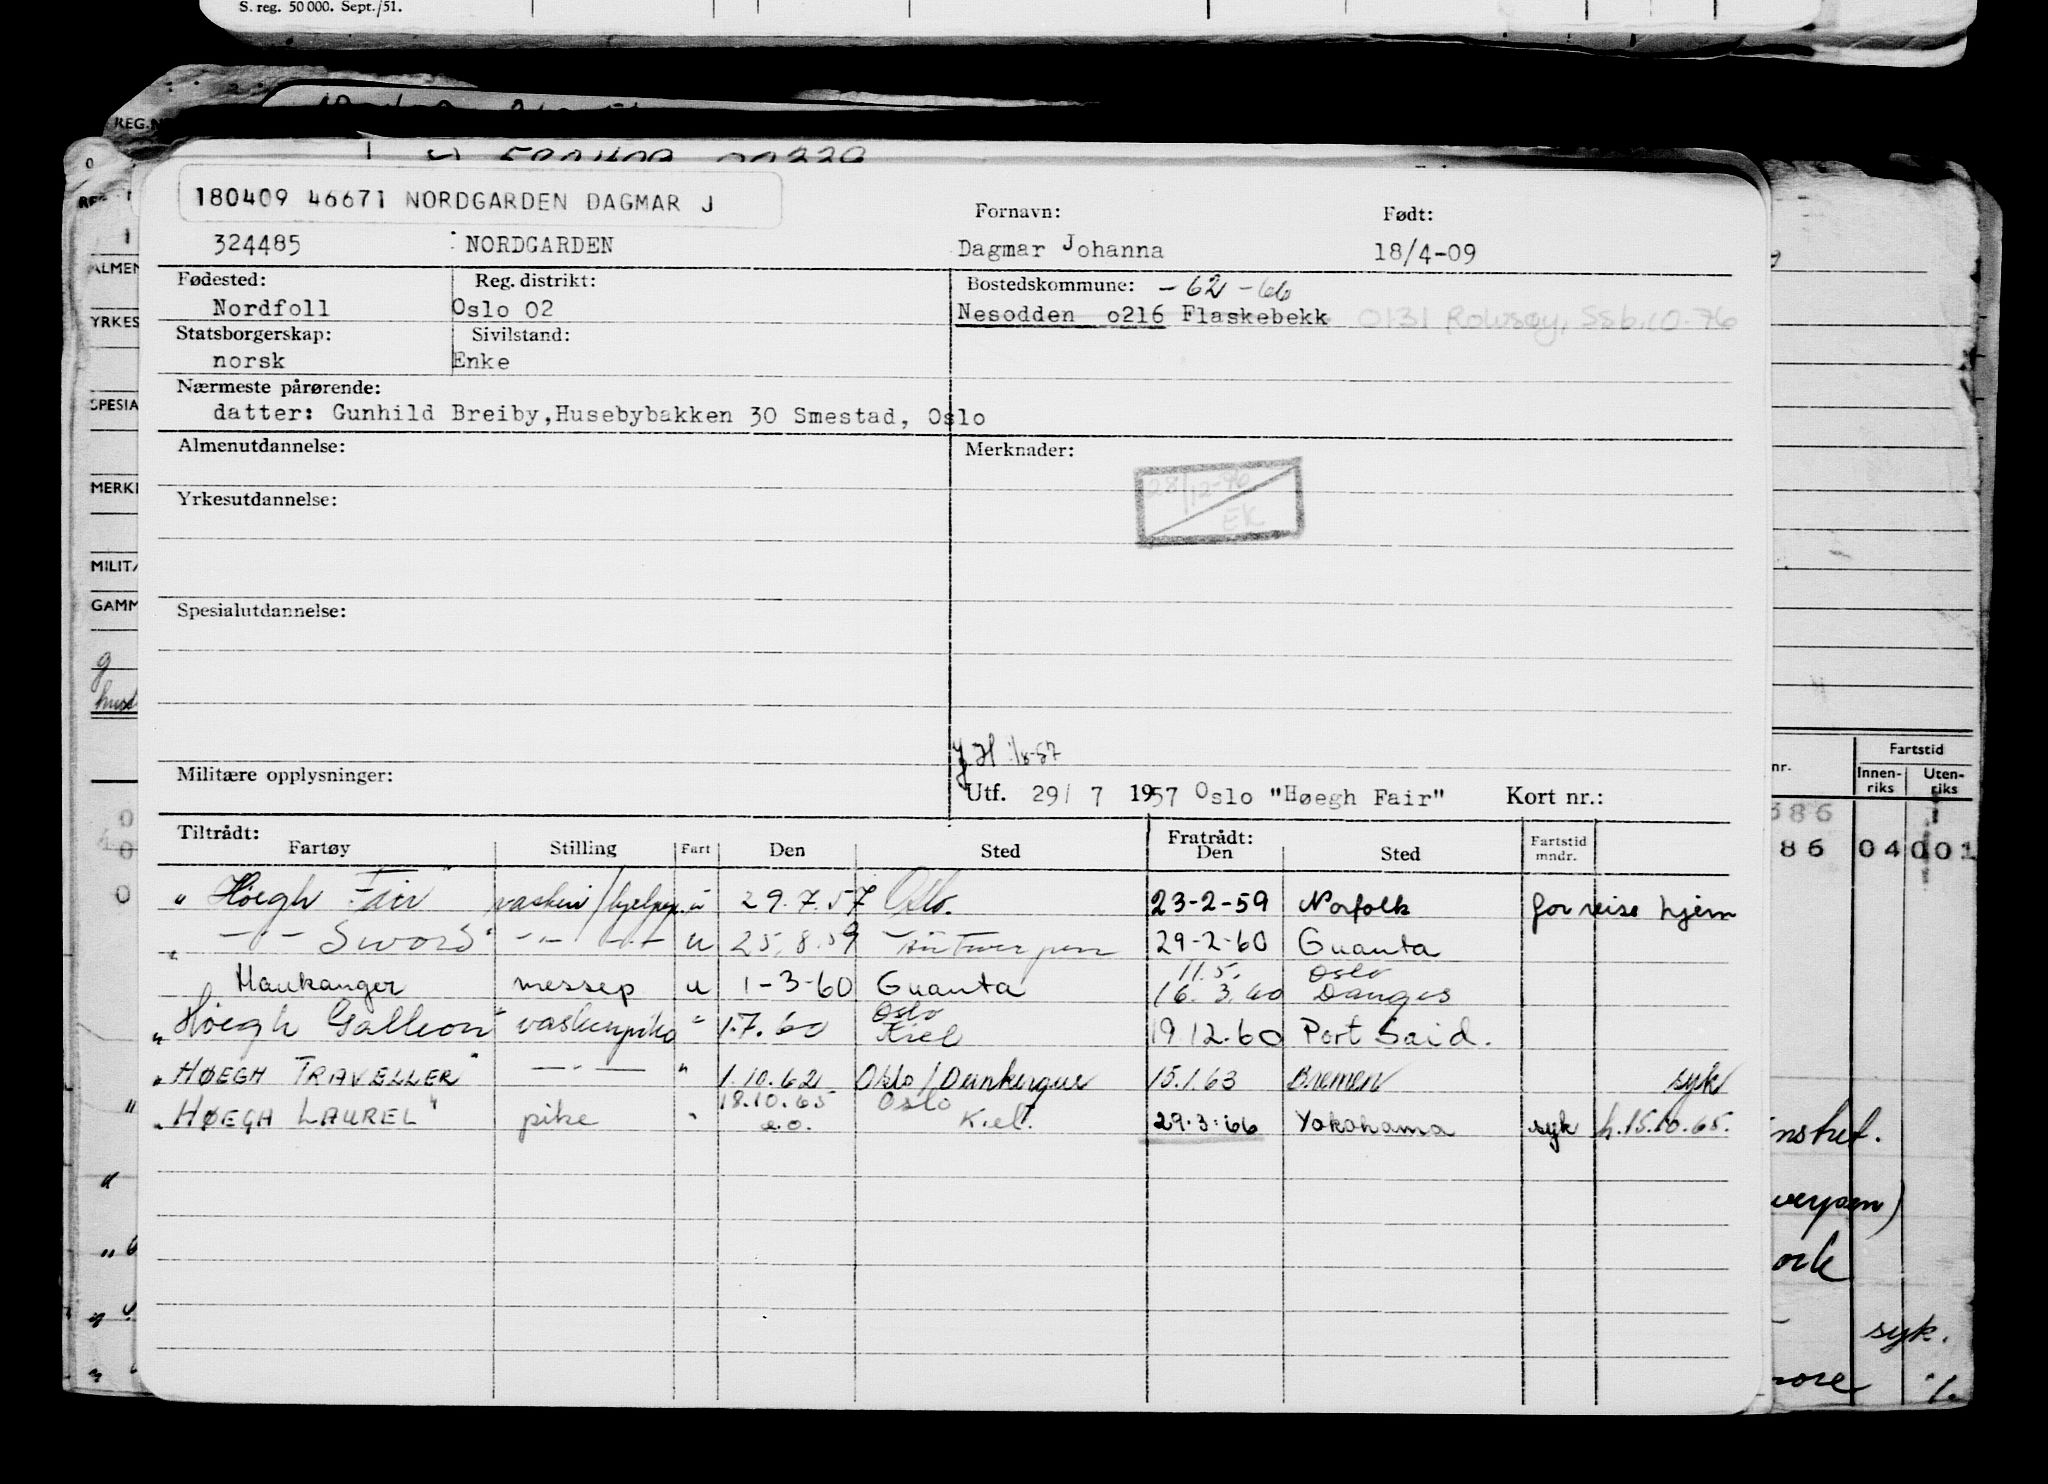 S. reg. 50 000. Sept./51.
REG.N
180409 46671 NORDGARDEN DAGMAR J
Fornavn: Født:
324485 NORDGARDEN Dagmar Johanna 18/4-09
Fødested: Reg. distrikt: Bostedskommune: -62 -66
Nordfoll Oslo 02 Nesodden o216 Flaskebekk 0131 Rolvsøy, Ssb.10.76
Statsborgerskap: Sivilstand:
norsk Enke
Nærmeste pårørende:
datter: Gunhild Breiby,Husebybakken 30 Smestad, Oslo
Almenutdannelse: Merknader:
28/12-76
EK
Yrkesutdannelse:
Spesialutdannelse:
1/8-57
Militære opplysninger:
Utf. 29/ 7 1957 Oslo "Høegh Fair" Kort nr.:
Tiltrådt: Fratrådt:
Fartøy Stilling Fart Den Sted Den Sted Fartstid mndr.
" Høegh Fair" vaskeri/hjelpep. u 29.7.57 Oslo. 23-2-59 Norfolk for reise hjem
" -"- Sword" -"- -"- u 25.8.59 Antwerpen 29-2-60 Guanta
11.5. Oslo
Haukanger messep u 1-3-60 Guanta 16.3.60 Danges
Oslo
" Høegh Galleon" vaskeripike " 1.7.60 Kiel 19.12.60 Port Said.
" HØEGH TRAVELLER" -"- " 1.10.62 Oslo/Dunkerque 15.1.63 Bremen syk
18.10.65 Oslo
" HØEGH LAUREL" pike " e.o. Kiel. 29.3.66 Yokohama syk h.15.10.65.
ALMEN
YRKES
SPESIA
MERK
MILIT
GAMM
nr. Fartstid
Innen-riks Uten-riks
386
86 04 001
nstret.
werpen)
ork
syk.